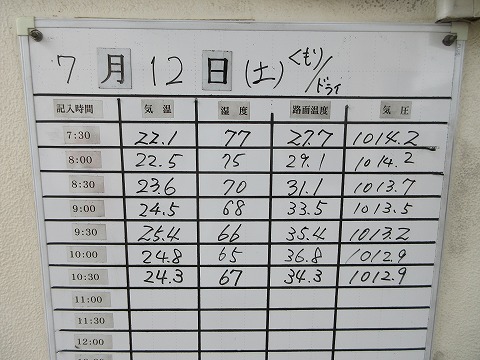 7月12日(土)くもり/ドライ
記入時間 気温 湿度 路面温度 気圧
7:30 22.1 77 27.7 1014.2
8:00 22.5 75 29.1 1014.2
8:30 23.6 70 31.1 1013.7
9:00 24.5 68 33.5 1013.5
9:30 25.4 66 35.4 1013.2
10:00 24.8 65 36.8 1012.9
10:30 24.3 67 34.3 1012.9
11:00
11:30
12:00